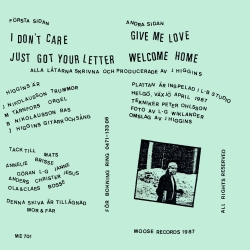 FÖRSTA SIDAN
I DON'T CARE
JUST GOT YOUR LETTER
ANDRA SIDAN
GIVE ME LOVE
WELCOME HOME
ALLA LÅTARNA SKRIVNA OCH PRODUCERADE AV J HIGGINS
HIGGINS ÄR
J NIKOLAUSSON TRUMMOR
M TÄRNFORS ORGEL
R NIKOLAUSSON BAS
J HIGGINS GITARR OCH SÅNG
PLATTAN ÄR INSPELAD I L-B STUDIO
HELGÖ, VÄXJÖ APRIL 1987
TEKNIKER PETER OHLSSON
FOTO AV L-G WIKLANDER
OMSLAG AV J HIGGINS
FÖR BOKNING RING 0471-133 09
TACK TILL MATS
ANNELIE BRISSE
GÖRAN L-G JANNE
ANDERS CHRISTER JESUS
OLA & CLAES BOSSE
DENNA SKIVA ÄR TILLÄGNAD
MOR & FAR
ALL RIGHTS RESERVED
ME 701
MOOSE RECORDS 1987